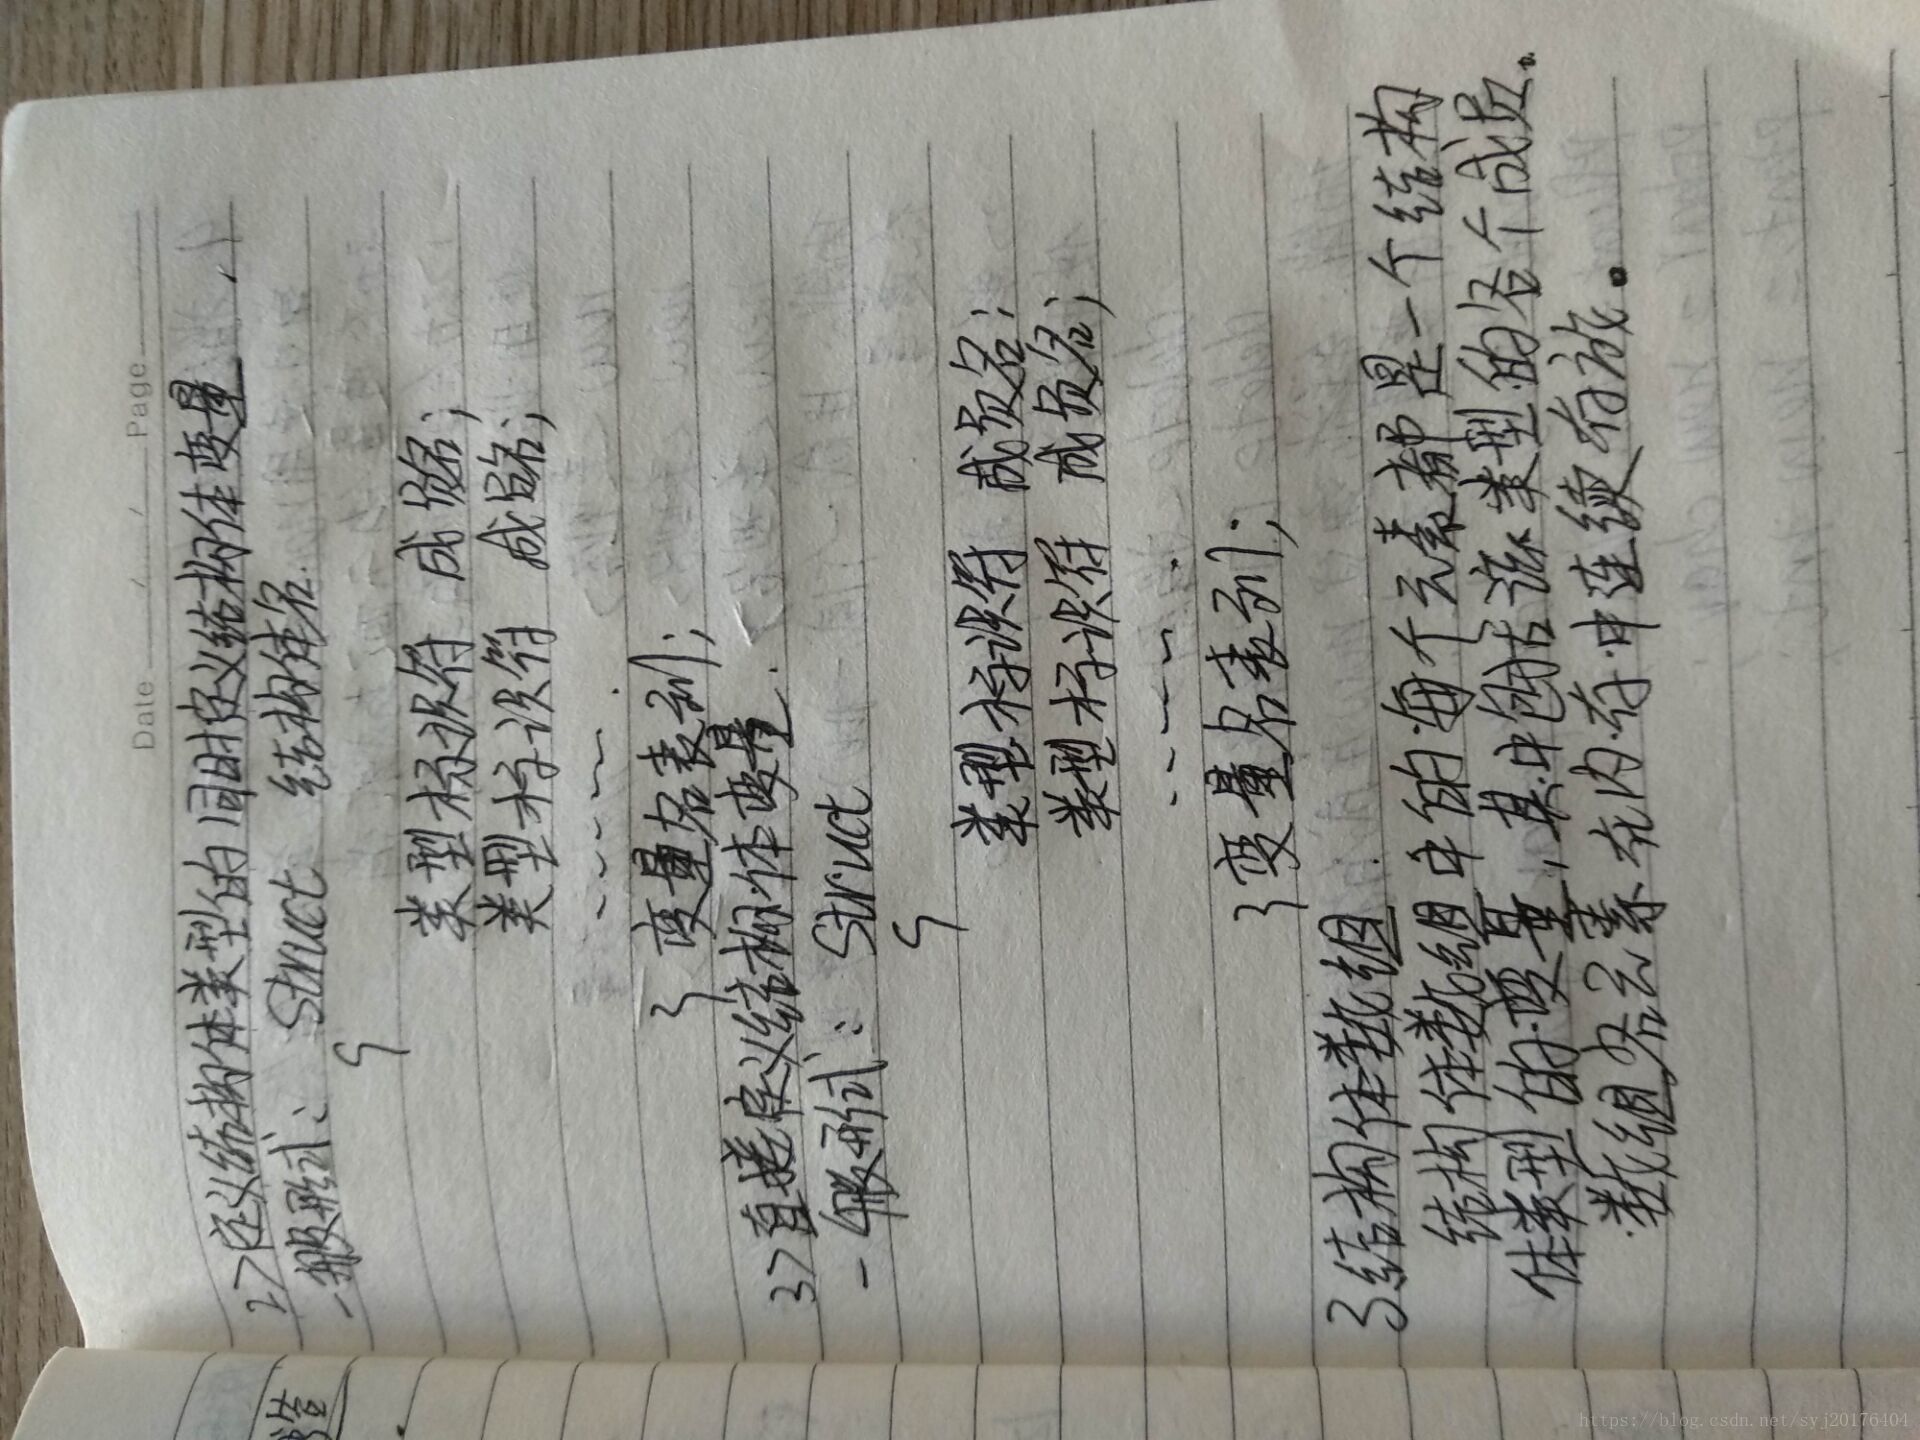 Date Page
2>定义结构体类型的同时定义结构体变量
一般形式: Struct 结构体名
{
类型标识符 成员名;
类型标识符 成员名;
……
}变量名表列;
3>直接定义结构体变量.
一般形式: Struct
{
类型标识符 成员名;
类型标识符 成员名;
……
}变量名表列;
3结构体数组
结构体数组中的每个元素都是一个结构
体类型的变量,其中包括该类型的各个成员。
数组各元素在内存中连续存放。
https://blog.csdn.net/syj20176404